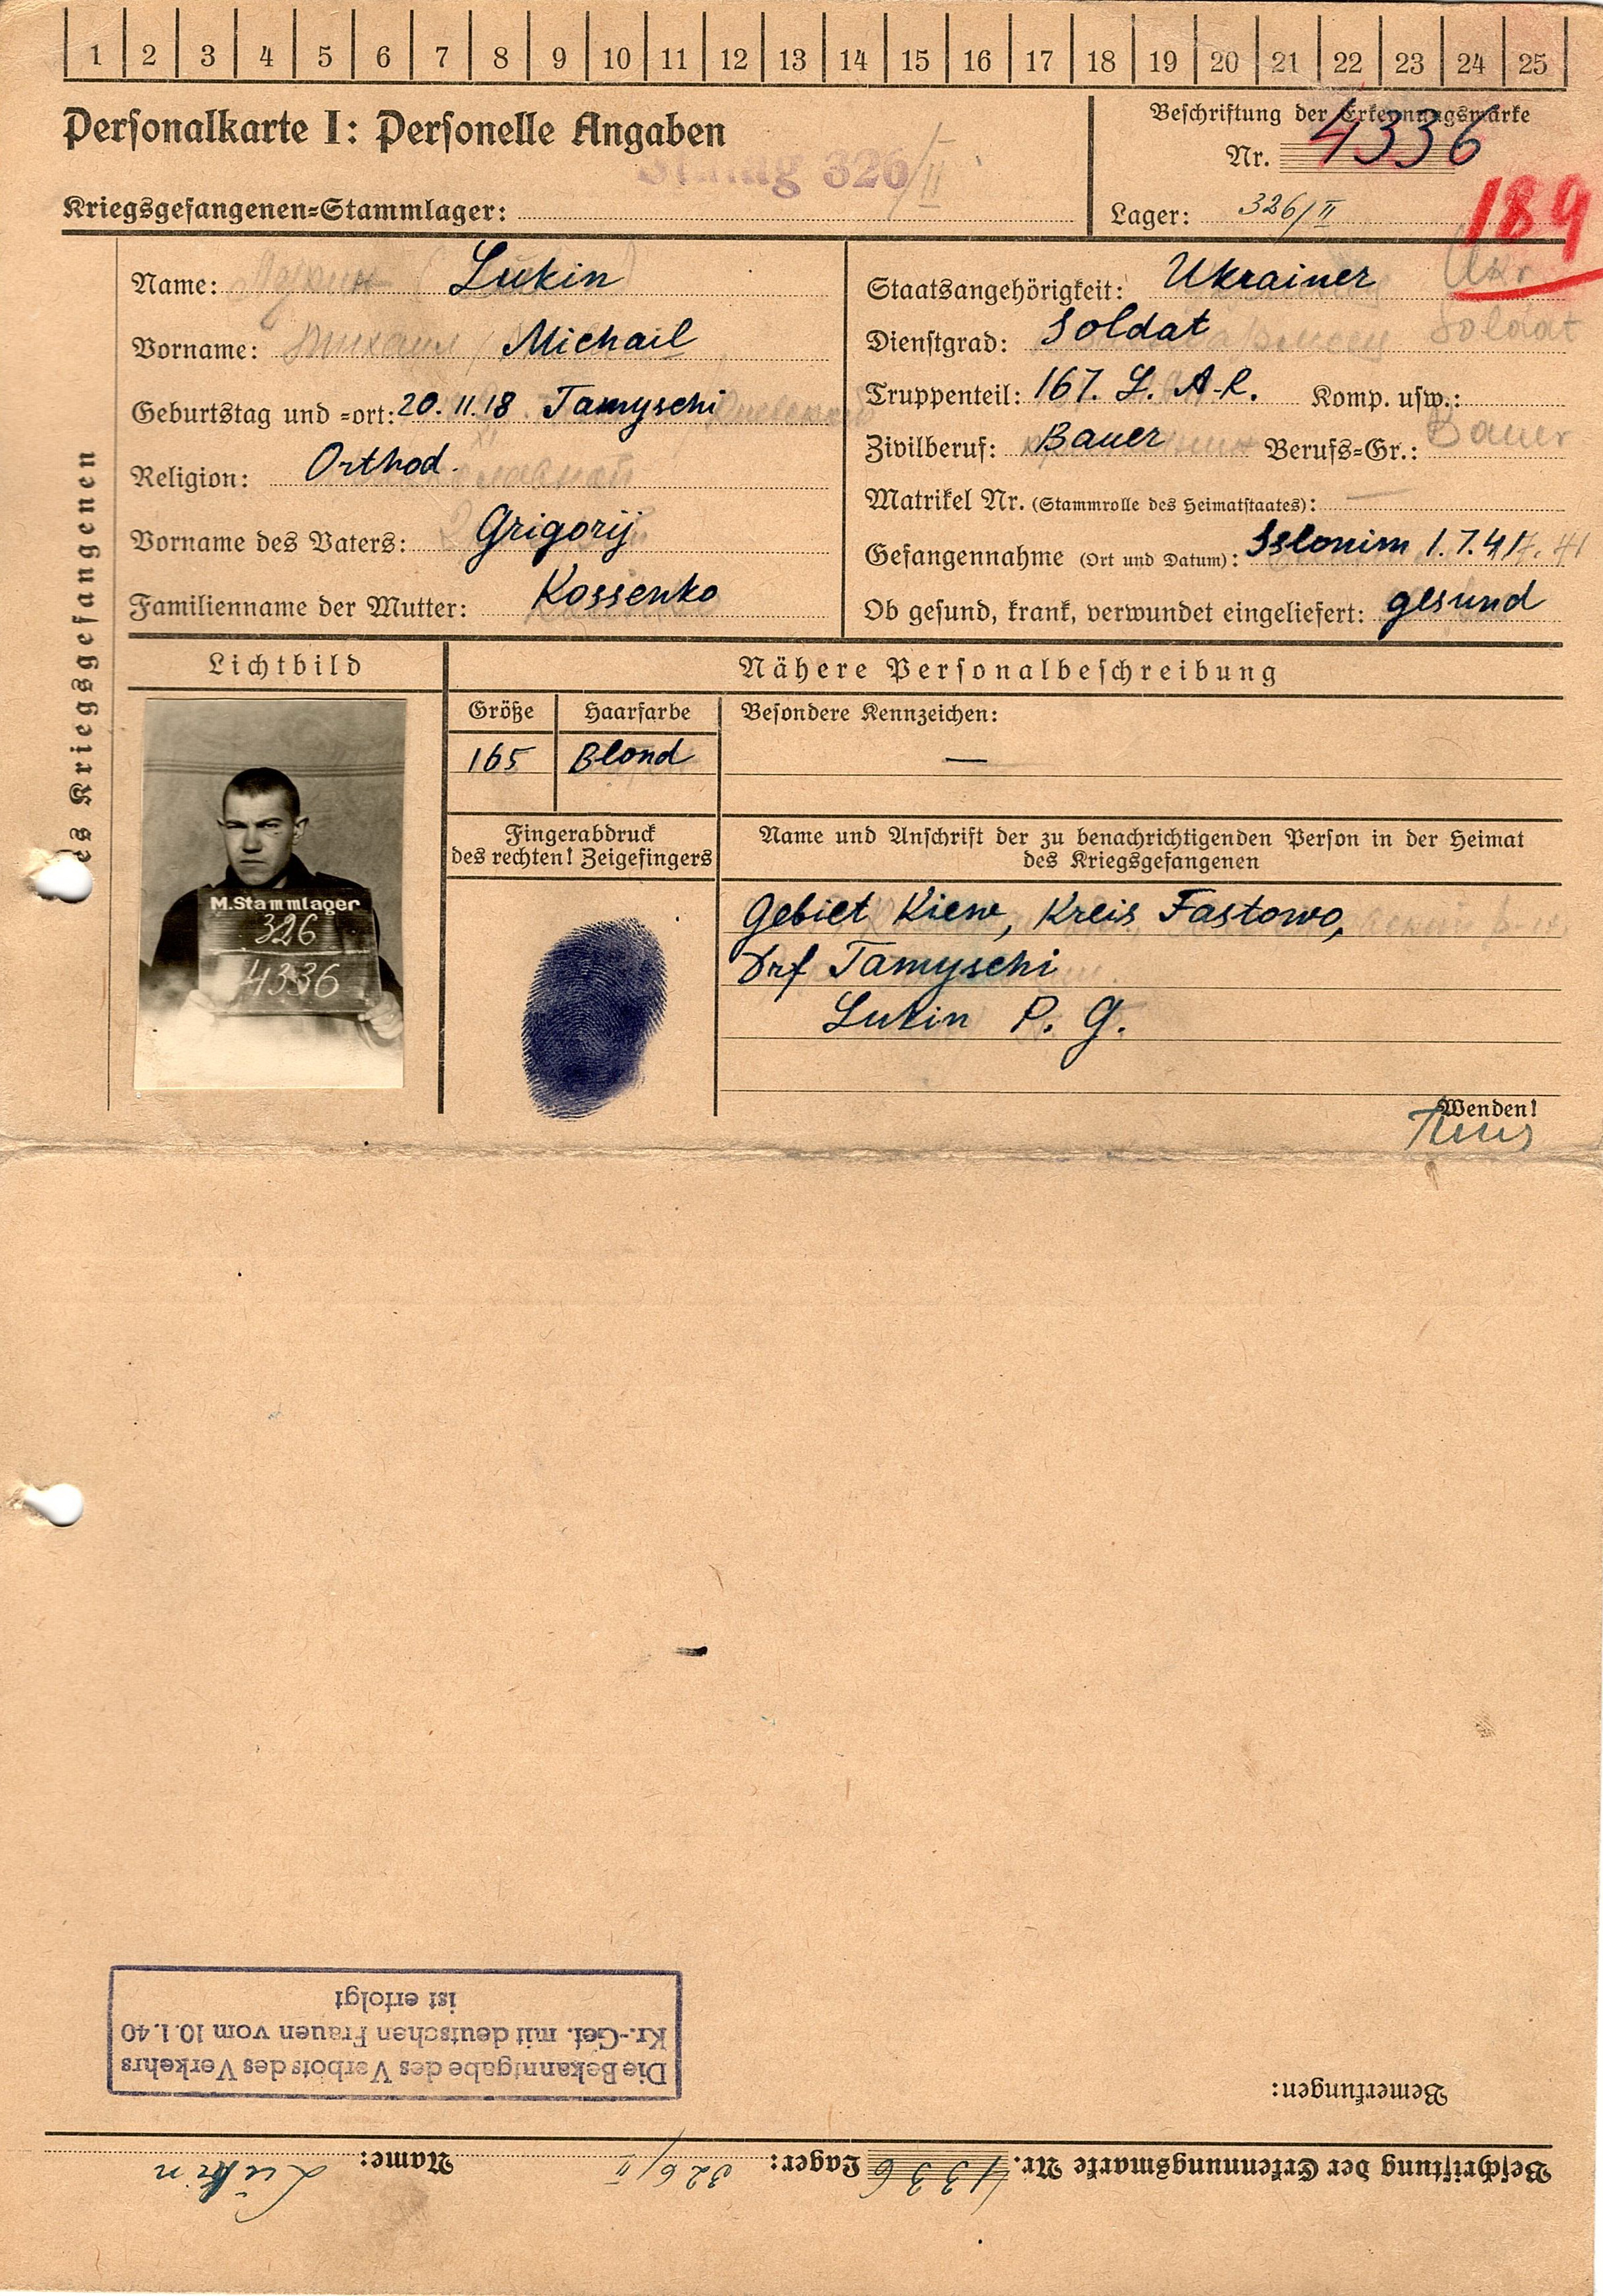 1 2 3 4 5 6 7 8 9 10 11 12 13 14 15 16 17 18 19 20 21 22 23 24 25
Personalkarte I: Personelle Angaben
Stalag 326/II
Kriegsgefangenen=Stammlager:
Beschriftung der Erkennungsmarke
Nr. 4336
Lager: 326/II
189
des Kriegsgefangenen
Name: Lukin
Vorname: Михаил Michail
Geburtstag und =ort: 20.11.18 Tamyschi
XI
Religion: Orthod.
Vorname des Vaters: Grigorij
Familienname der Mutter: Kossenko
Staatsangehörigkeit: Ukrainer Ukr
Dienstgrad: Soldat Soldat
Truppenteil: 167. L. A-R. Komp. usw.:
Zivilberuf: Bauer Berufs=Gr.: Bauer
Matrikel Nr. (Stammrolle des Heimatstaates): —
Gefangennahme (Ort und Datum): Sslonim 1.7.41
Ob gesund, krank, verwundet eingeliefert: gesund
Lichtbild
M.Stammlager
326
4336
Nähere Personalbeschreibung
Größe Haarfarbe Besondere Kennzeichen:
165 Blond —
Fingerabdruck
des rechten! Zeigefingers
Name und Anschrift der zu benachrichtigenden Person in der Heimat
des Kriegsgefangenen
Gebiet Kiew, Kreis Fastowo,
Drf Tamyschi
Lukin P. G.
Wenden!
Beschriftung der Erkennungsmarke Nr. 4336 Lager: 326/II Name: Lukin
Bemerkungen:
Die Bekanntgabe des Verbots des Verkehrs
Kr.-Gef. mit deutschen Frauen vom 10.1.40
ist erfolgt